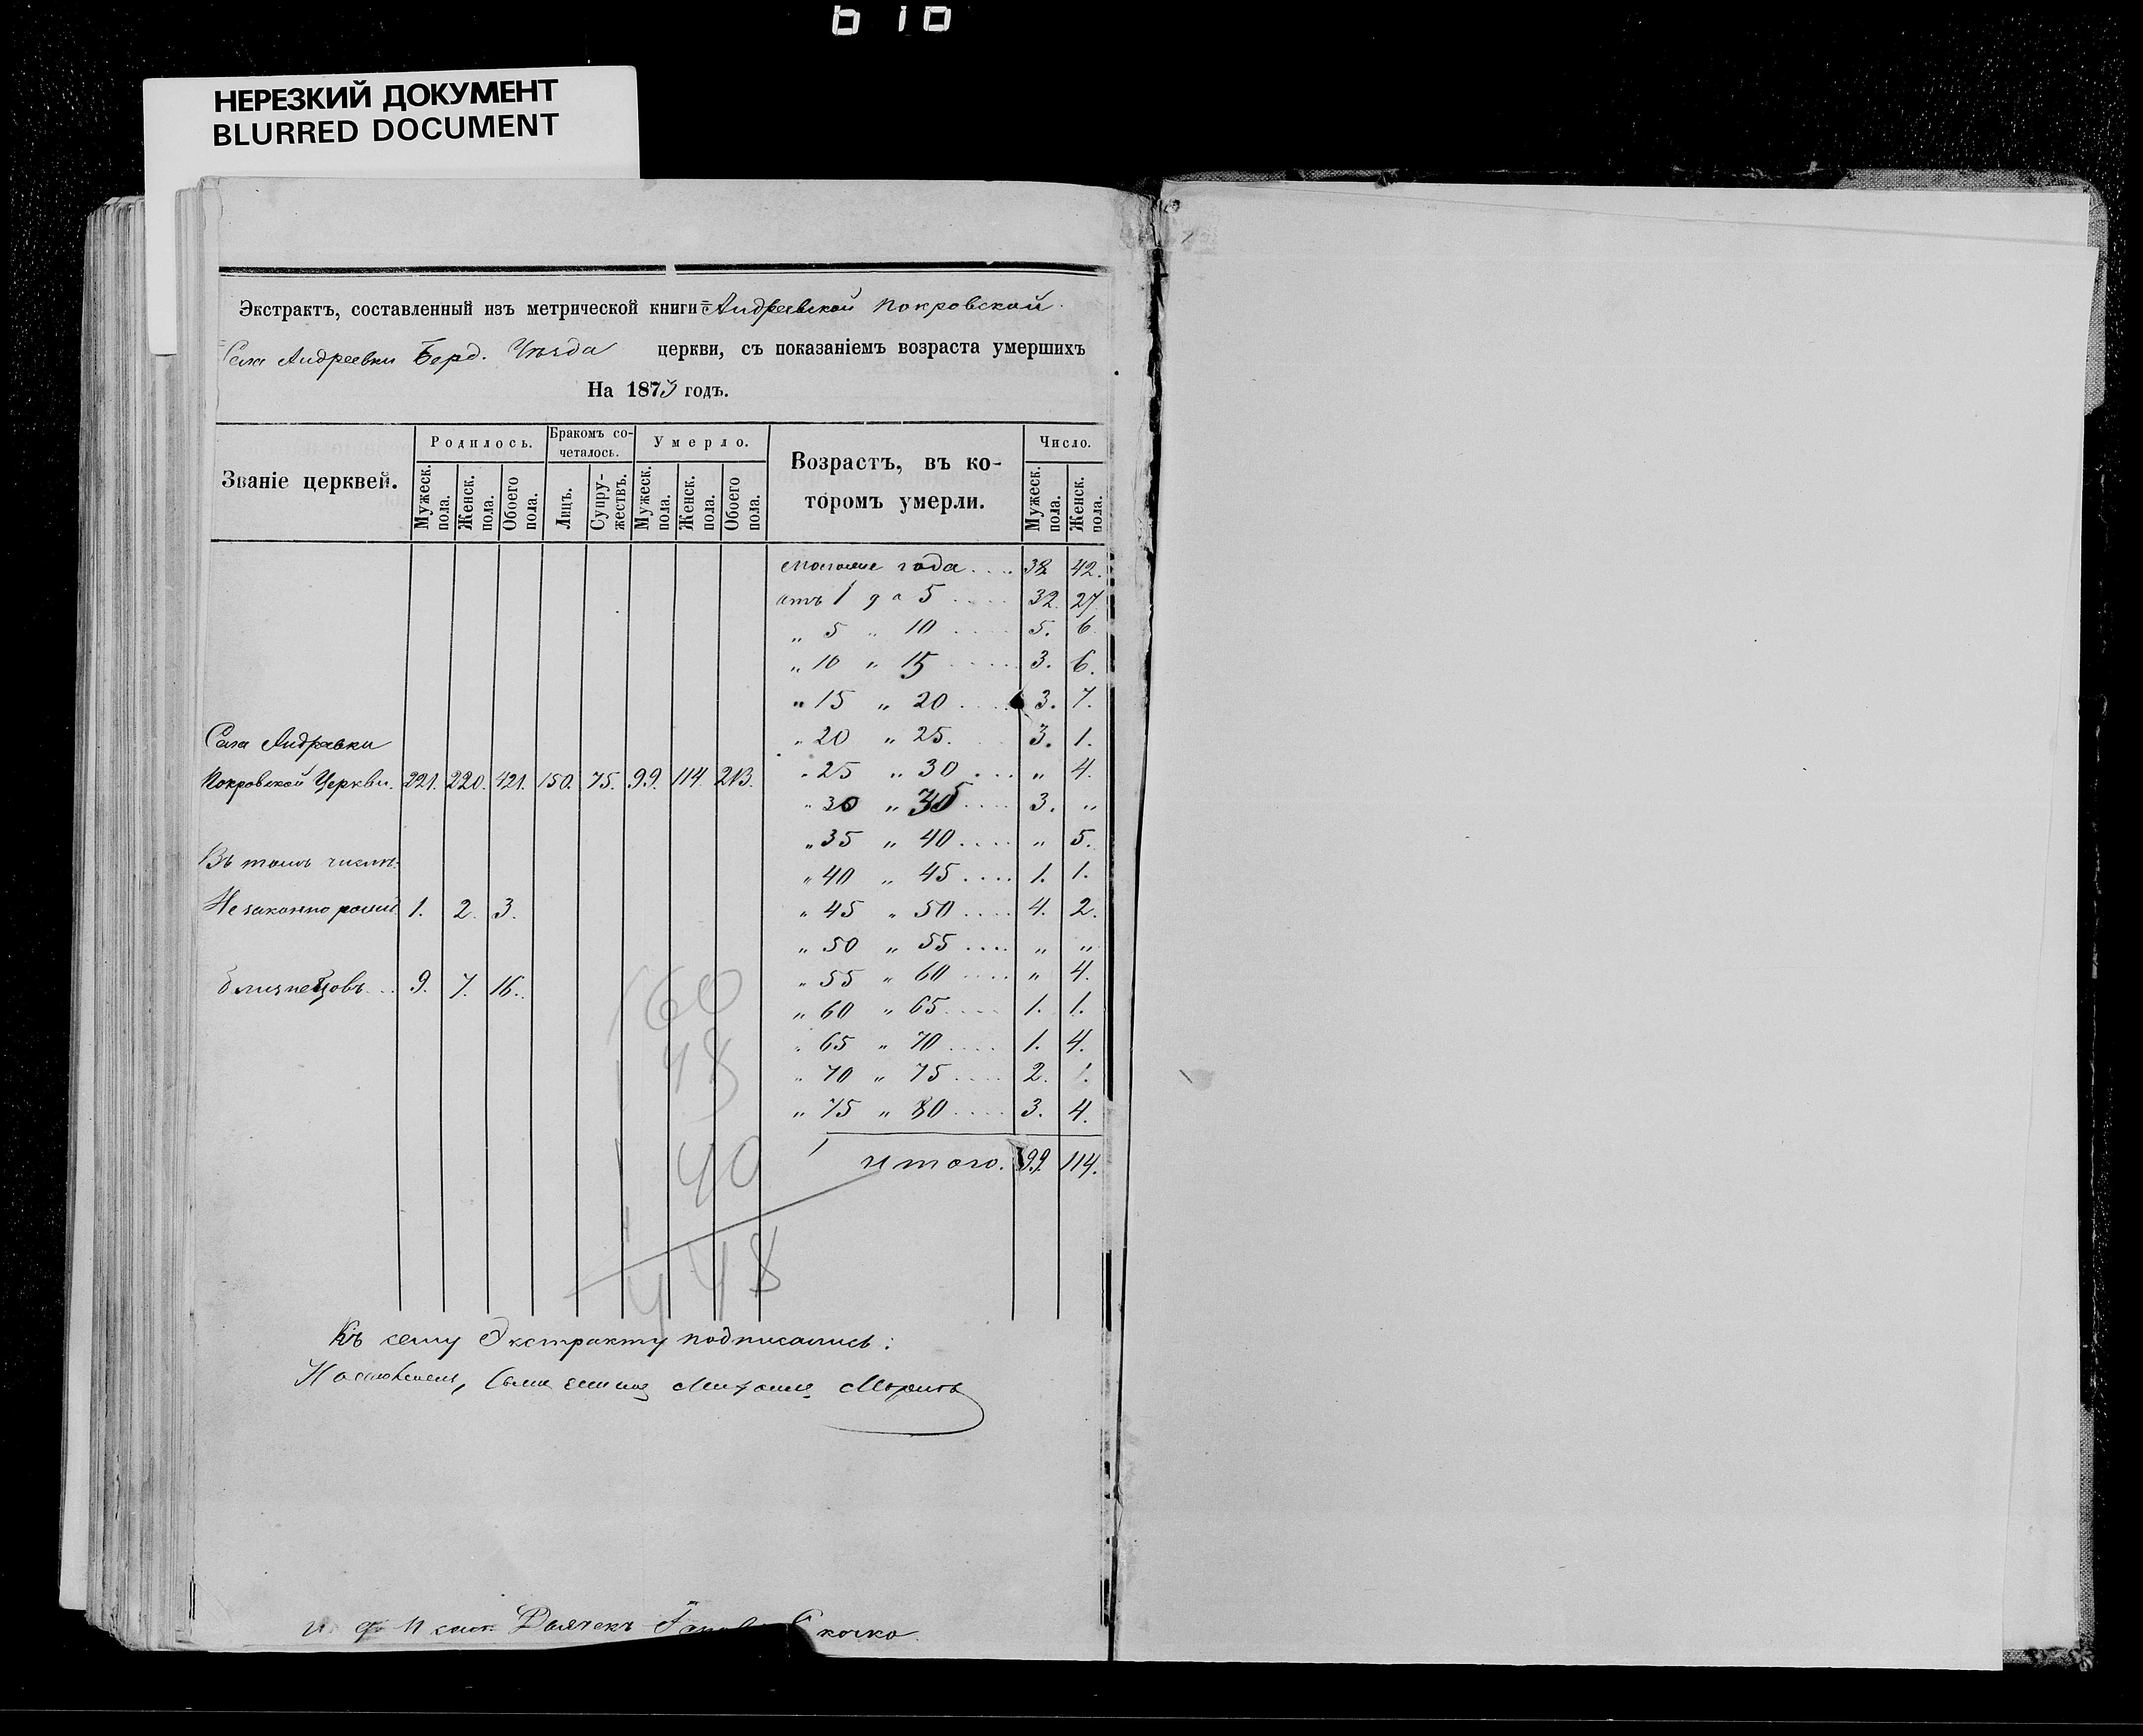 610
НЕРЕЗКИЙ ДОКУМЕНТ
BLURRED DOCUMENT
Экстрактъ, составленный изъ метрической книги Андреевской Покровской
Села Андреевки Берд. Уѣзда церкви, съ показаніемъ возраста умершихъ
На 1873 годъ.
Званіе церквей. Родилось. Бракомъ сочеталось. Умерло. Возрастъ, въ которомъ умерли. Число.
Мужеск. пола. Женск. пола. Обоего пола. Лицъ. Супружествъ. Мужеск. пола. Женск. пола. Обоего пола. Мужеск. пола. Женск. пола.
года.... 38 42.
отъ 1 до 5 .... 32. 27.
„ 5 „ 10 .... 5. 6
„ 10 „ 15 .... 3. 6.
„ 15 „ 20 .... 3. 7.
Села Андреевки „ 20 „ 25. 3. 1.
Покровской Церкви. 221. 220. 421. 150. 75. 99. 114. 213. „ 25 „ 30 .... „ 4.
„ 30 „ 35 .... 3. „
„ 35 „ 40 .... „ 5.
Въ томъ числѣ:
„ 40 „ 45 .... 1. 1.
Незаконно рожд. 1. 2. 3. „ 45 „ 50 .... 4. 2.
„ 50 „ 55 .... „ „
близнецовъ... 9. 7. 16. „ 55 „ 60 .... „ 4.
„ 60 „ 65 .... 1. 1.
„ 65 „ 70 .... 1. 4.
„ 70 „ 75 .... 2. 1.
„ 75 „ 80 .... 3. 4.
итого. 99 114.
160
48
40
448
Къ сему Экстракту подписались:
Настоятель, Священникъ Михаилъ
Псал. Дьячекъ